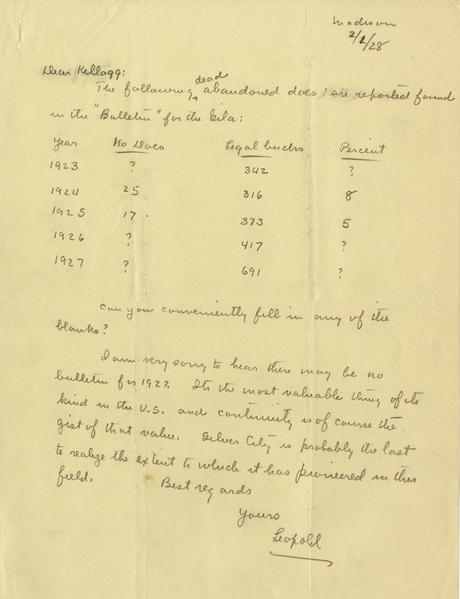 Madison
2/2/28
Dear Kellogg:
The following dead abandoned does are reported found
in the "Bulletin" for the Gila:
Year No Does Legal bucks Percent
1923 ? 342 ?
1924 25 316 8
1925 17 373 5
1926 ? 417 ?
1927 ? 691 ?
Can you conveniently fill in any of the
blanks?
I am very sorry to hear there may be no
bulletin for 1927. Its the most valuable thing of its
kind in the U.S. and continuity is of course the
gist of that value. Silver City is probably the last
to realize the extent to which it has pioneered in this
field. Best regards
Yours
Leopold